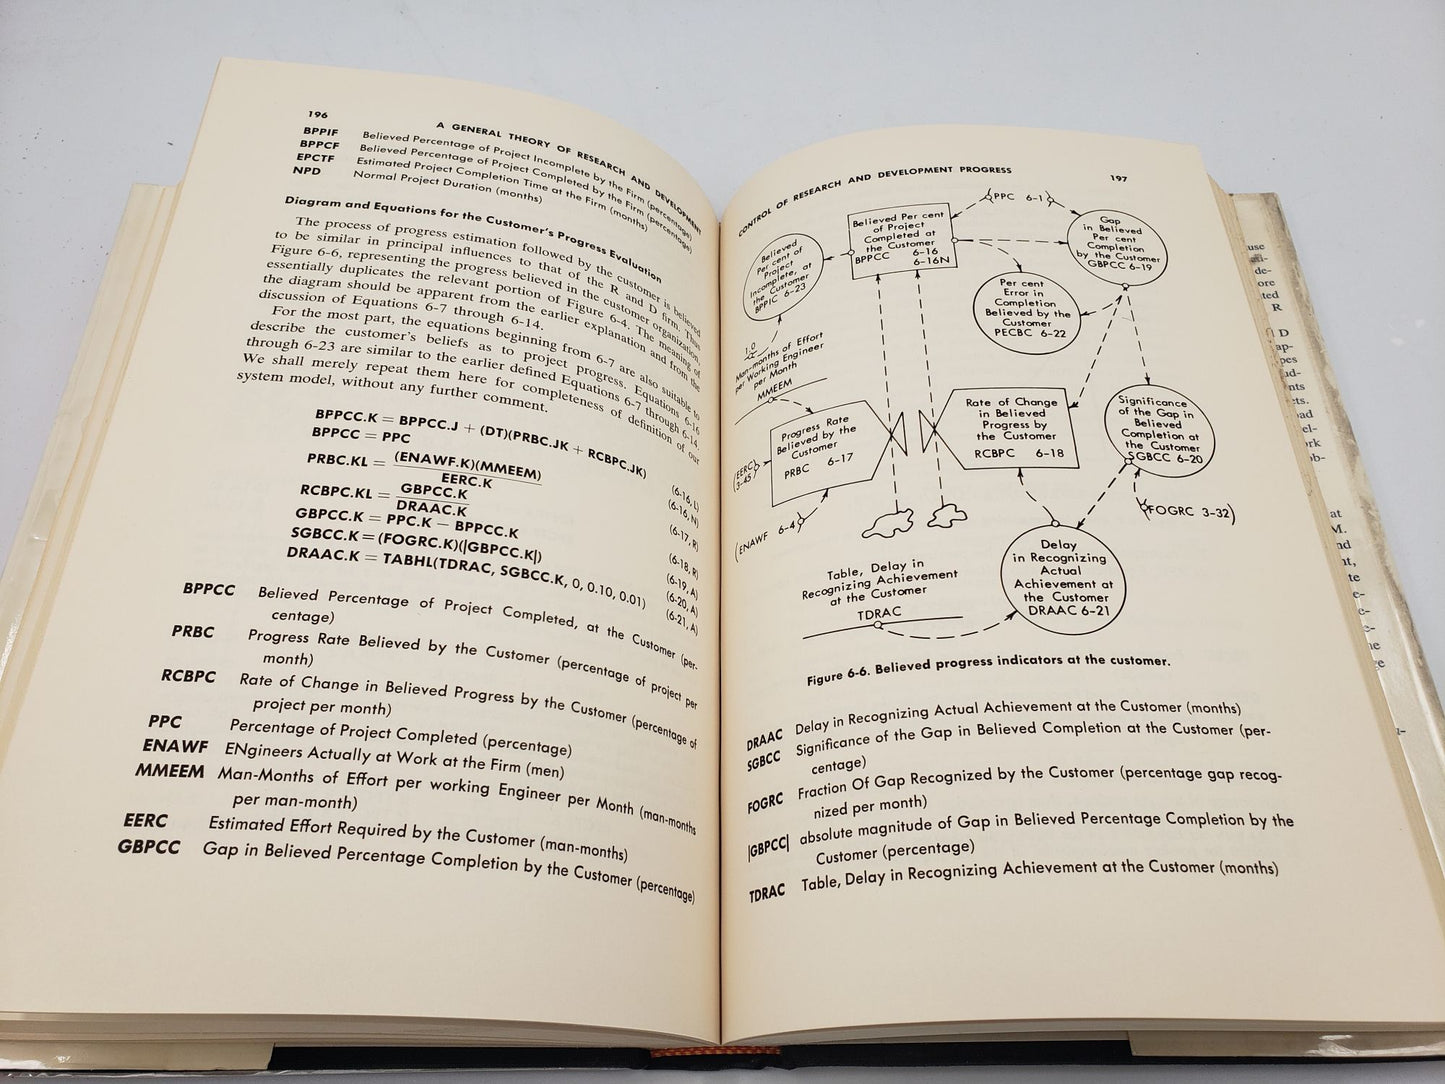 196
A GENERAL THEORY OF RESEARCH AND DEVELOPMENT
BPPIF Believed Percentage of Project Incomplete by the Firm (percentage)
BPPCF Believed Percentage of Project Completed by the Firm (percentage)
EPCTF Estimated Project Completion Time at the Firm (months)
NPD Normal Project Duration (months)
Diagram and Equations for the Customer's Progress Evaluation
The process of progress estimation followed by the customer is believed
to be similar in principal influences to that of the R and D firm. Thus
Figure 6-6, representing the progress believed in the customer organization,
essentially duplicates the relevant portion of Figure 6-4. The meaning of
the diagram should be apparent from the earlier explanation and from the
discussion of Equations 6-7 through 6-14.
For the most part, the equations beginning from 6-7 are also suitable to
describe the customer's beliefs as to project progress. Equations 6-16
through 6-23 are similar to the earlier defined Equations 6-7 through 6-14.
We shall merely repeat them here for completeness of definition of our
system model, without any further comment.
BPPCC.K = BPPCC.J + (DT)(PRBC.JK + RCBPC.JK) (6-16, L)
BPPCC = PPC (6-16, N)
PRBC.KL = (ENAWF.K)(MMEEM)
EERC.K (6-17, R)
RCBPC.KL = GBPCC.K
DRAAC.K (6-18, R)
GBPCC.K = PPC.K − BPPCC.K (6-19, A)
SGBCC.K = (FOGRC.K)(|GBPCC.K|) (6-20, A)
DRAAC.K = TABHL(TDRAC, SGBCC.K, 0, 0.10, 0.01) (6-21, A)
BPPCC Believed Percentage of Project Completed, at the Customer (per-
centage)
PRBC Progress Rate Believed by the Customer (percentage of project per
month)
RCBPC Rate of Change in Believed Progress by the Customer (percentage of
project per month)
PPC Percentage of Project Completed (percentage)
ENAWF ENgineers Actually at Work at the Firm (men)
MMEEM Man-Months of Effort per working Engineer per Month (man-months
per man-month)
EERC Estimated Effort Required by the Customer (man-months)
GBPCC Gap in Believed Percentage Completion by the Customer (percentage)
CONTROL OF RESEARCH AND DEVELOPMENT PROGRESS
197
PPC 6-1
Believed Per cent
of Project
Completed at
the Customer
BPPCC 6-16
6-16N
Gap
in Believed
Per cent
Completion
by the Customer
GBPCC 6-19
Believed
Per cent of
Project
Incomplete, at
the Customer
BPPIC 6-23
Per cent
Error in
Completion
Believed by the
Customer
PECBC 6-22
1.0
Man-months of Effort
per Working Engineer
per Month
MMEEM
Progress Rate
Believed by the
Customer
PRBC 6-17
Rate of Change
in Believed
Progress by
the Customer
RCBPC 6-18
Significance
of the Gap in
Believed
Completion at
the Customer
SGBCC 6-20
(EERC
3-45)
(ENAWF 6-4)
(FOGRC 3-32)
Table, Delay in
Recognizing Achievement
at the Customer
TDRAC
Delay
in Recognizing
Actual
Achievement at
the Customer
DRAAC 6-21
Figure 6-6. Believed progress indicators at the customer.
DRAAC Delay in Recognizing Actual Achievement at the Customer (months)
SGBCC Significance of the Gap in Believed Completion at the Customer (per-
centage)
FOGRC Fraction Of Gap Recognized by the Customer (percentage gap recog-
nized per month)
|GBPCC| absolute magnitude of Gap in Believed Percentage Completion by the
Customer (percentage)
TDRAC Table, Delay in Recognizing Achievement at the Customer (months)